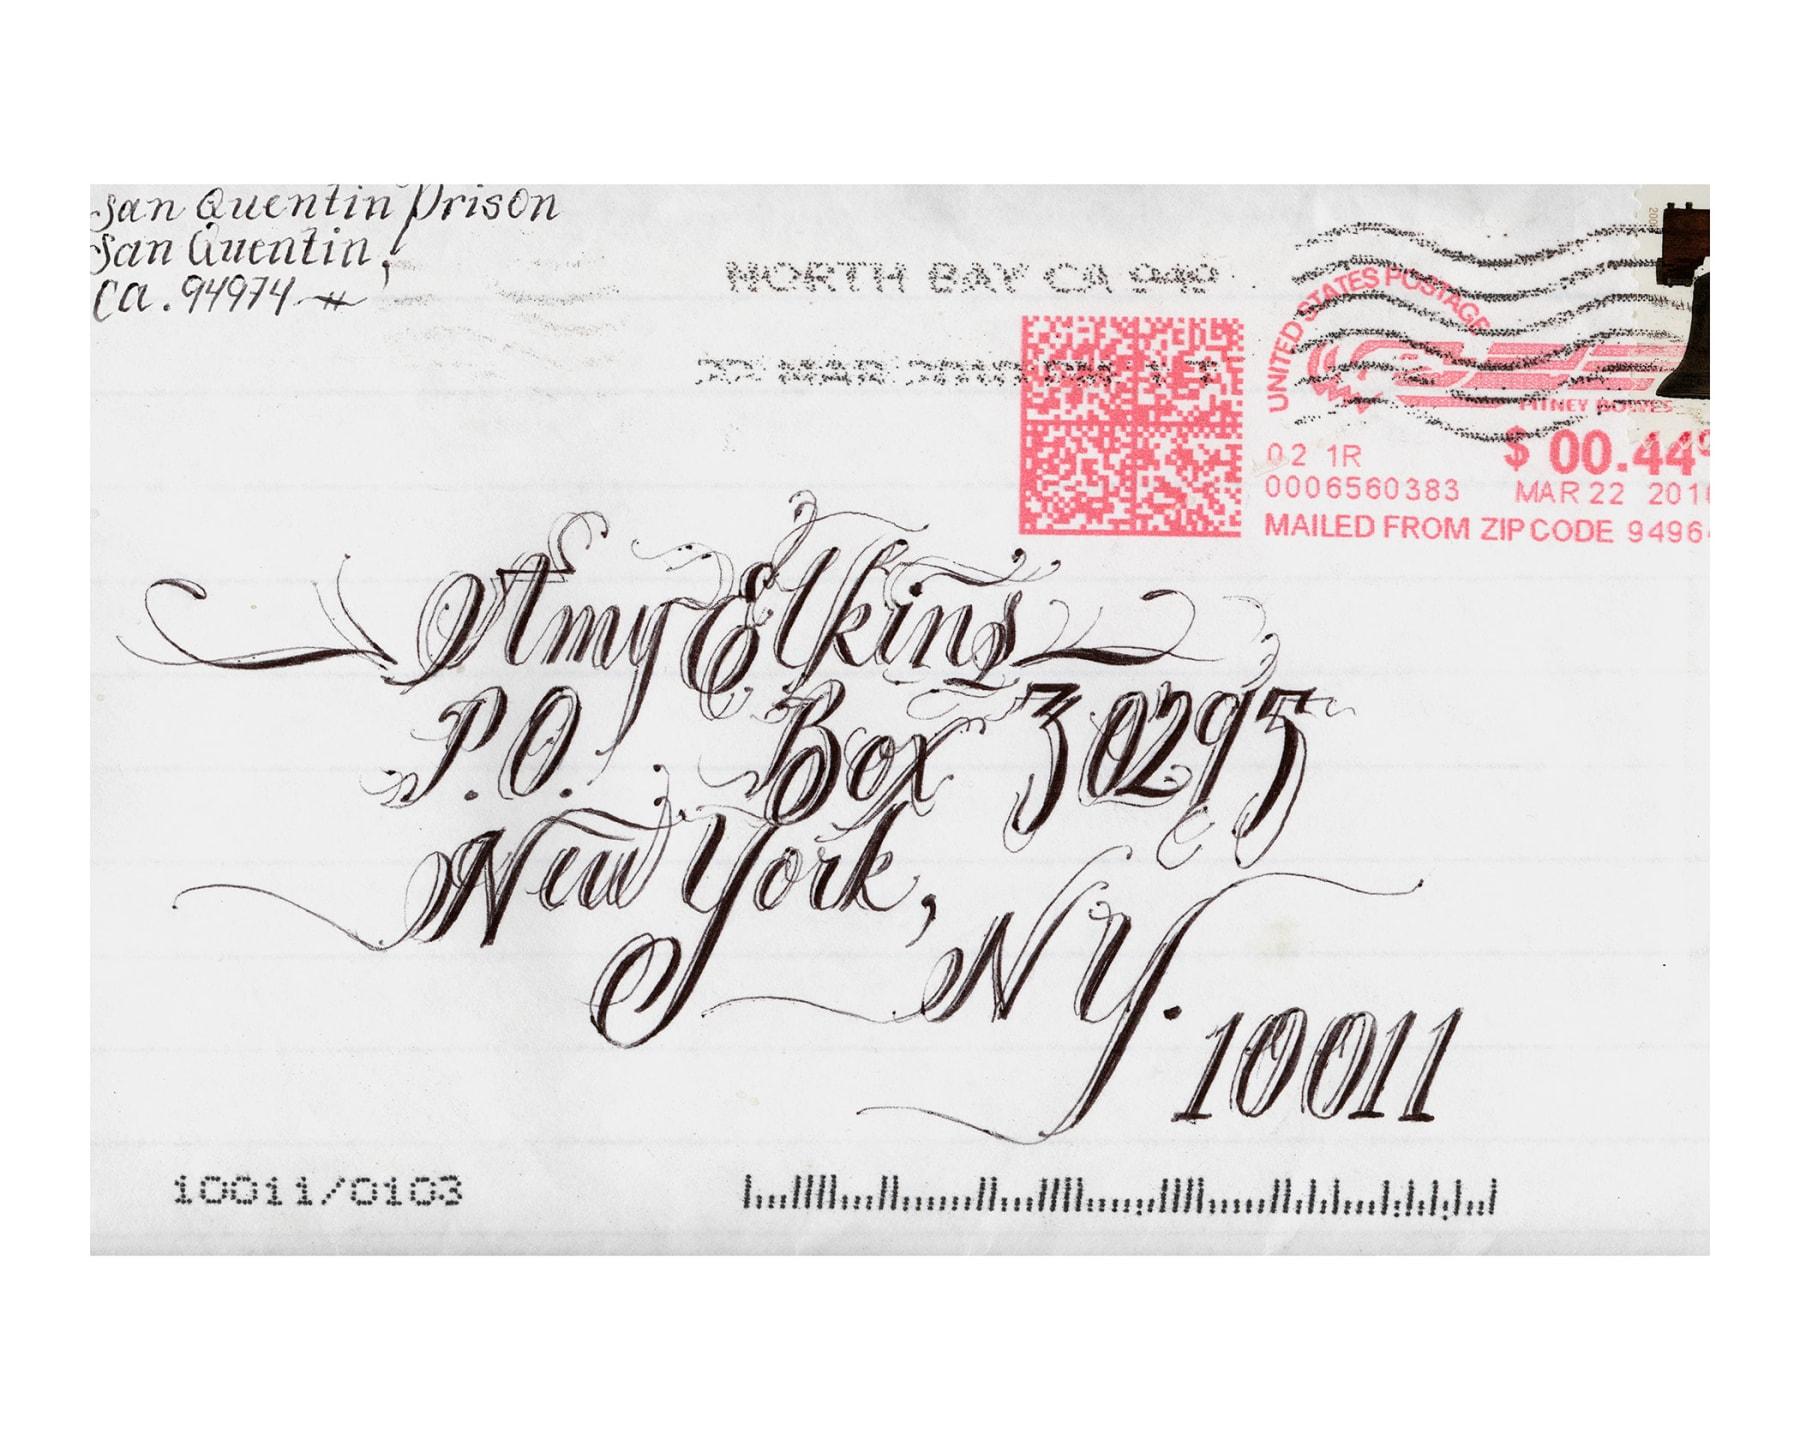 San Quentin Prison
San Quentin,
CA. 94974
NORTH BAY CA 949
22 MAR 2010 PM
UNITED STATES POSTAGE
PITNEY BOWES
02 1R
$ 00.44⁰
0006560383
MAR 22 2010
MAILED FROM ZIP CODE 9496
Amy Elkins
P.O. Box 30295
New York, NY. 10011
10011/0103